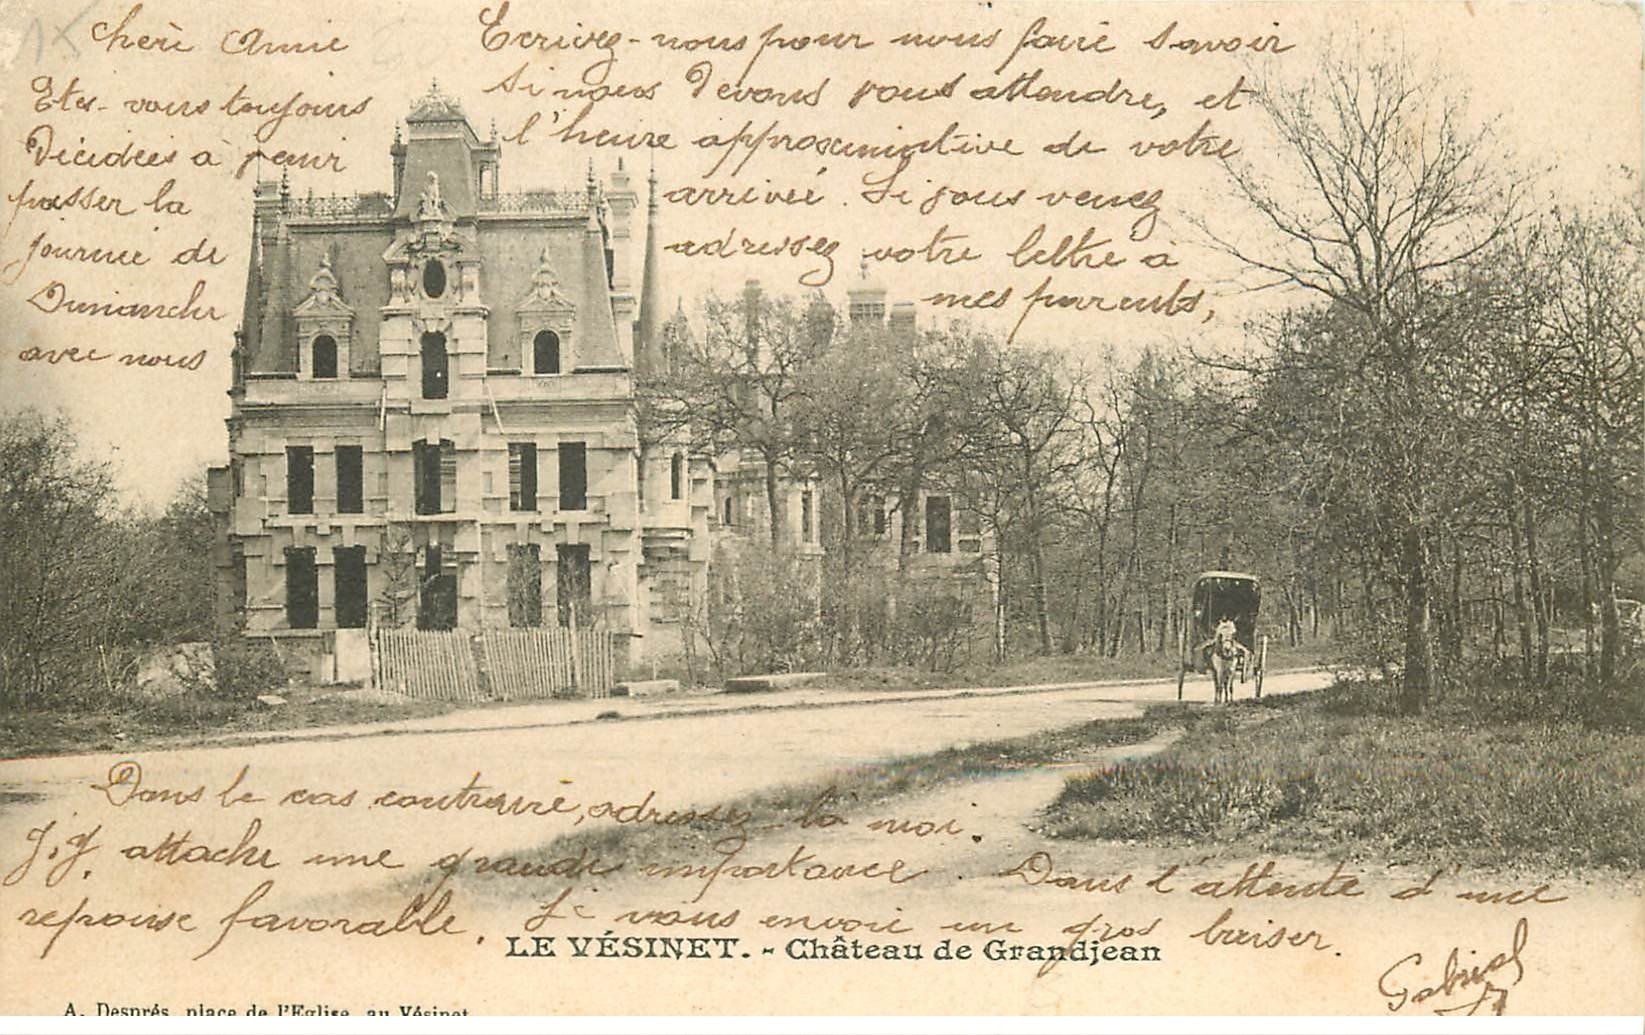 Chère Annie
Etes-vous toujours
Décidées à venir
passer la
journée de
Dimanche
avec nous
Ecrivez-nous pour nous faire savoir
si nous Devons vous attendre, et
l'heure approximative de votre
arrivée. Si vous venez
adressez votre lettre à
mes parents,
Dans le cas contraire, adressez-la moi.
J'y attache une grande importance. Dans l'attente d'une
reponse favorable. Je vous envoie un gros baiser.
Gabriel
LE VÉSINET. - Château de Grandjean
A. Després, place de l'Eglise, au Vésinet